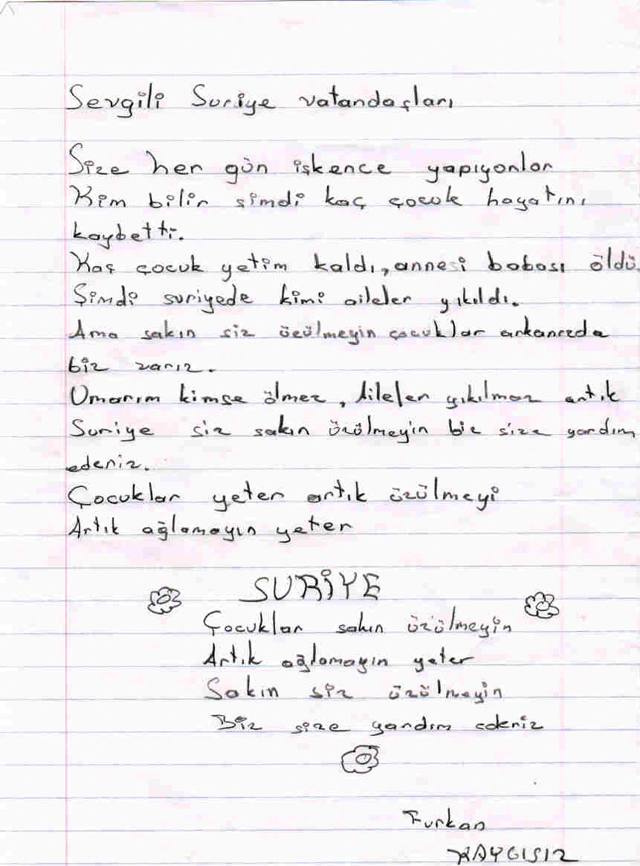 Sevgili Suriye vatandaşları
Size her gün işkence yapıyorlar
Kim bilir şimdi kaç çocuk hayatını
kaybetti.
Kaç çocuk yetim kaldı, annesi babası öldü
Şimdi suriyede kimi aileler yıkıldı.
Ama sakın siz üzülmeyin çocuklar arkanızda
biz varız.
Umarım kimse ölmez, Aileler yıkılmaz artık
Suriye siz sakın üzülmeyin biz size yardım
ederiz.
Çocuklar yeter artık üzülmeyi
Artık ağlamayın yeter
SURİYE
Çocuklar sakın üzülmeyin
Artık ağlamayın yeter
Sakın siz üzülmeyin
Biz size yardım ederiz
Furkan
KAYGISIZ